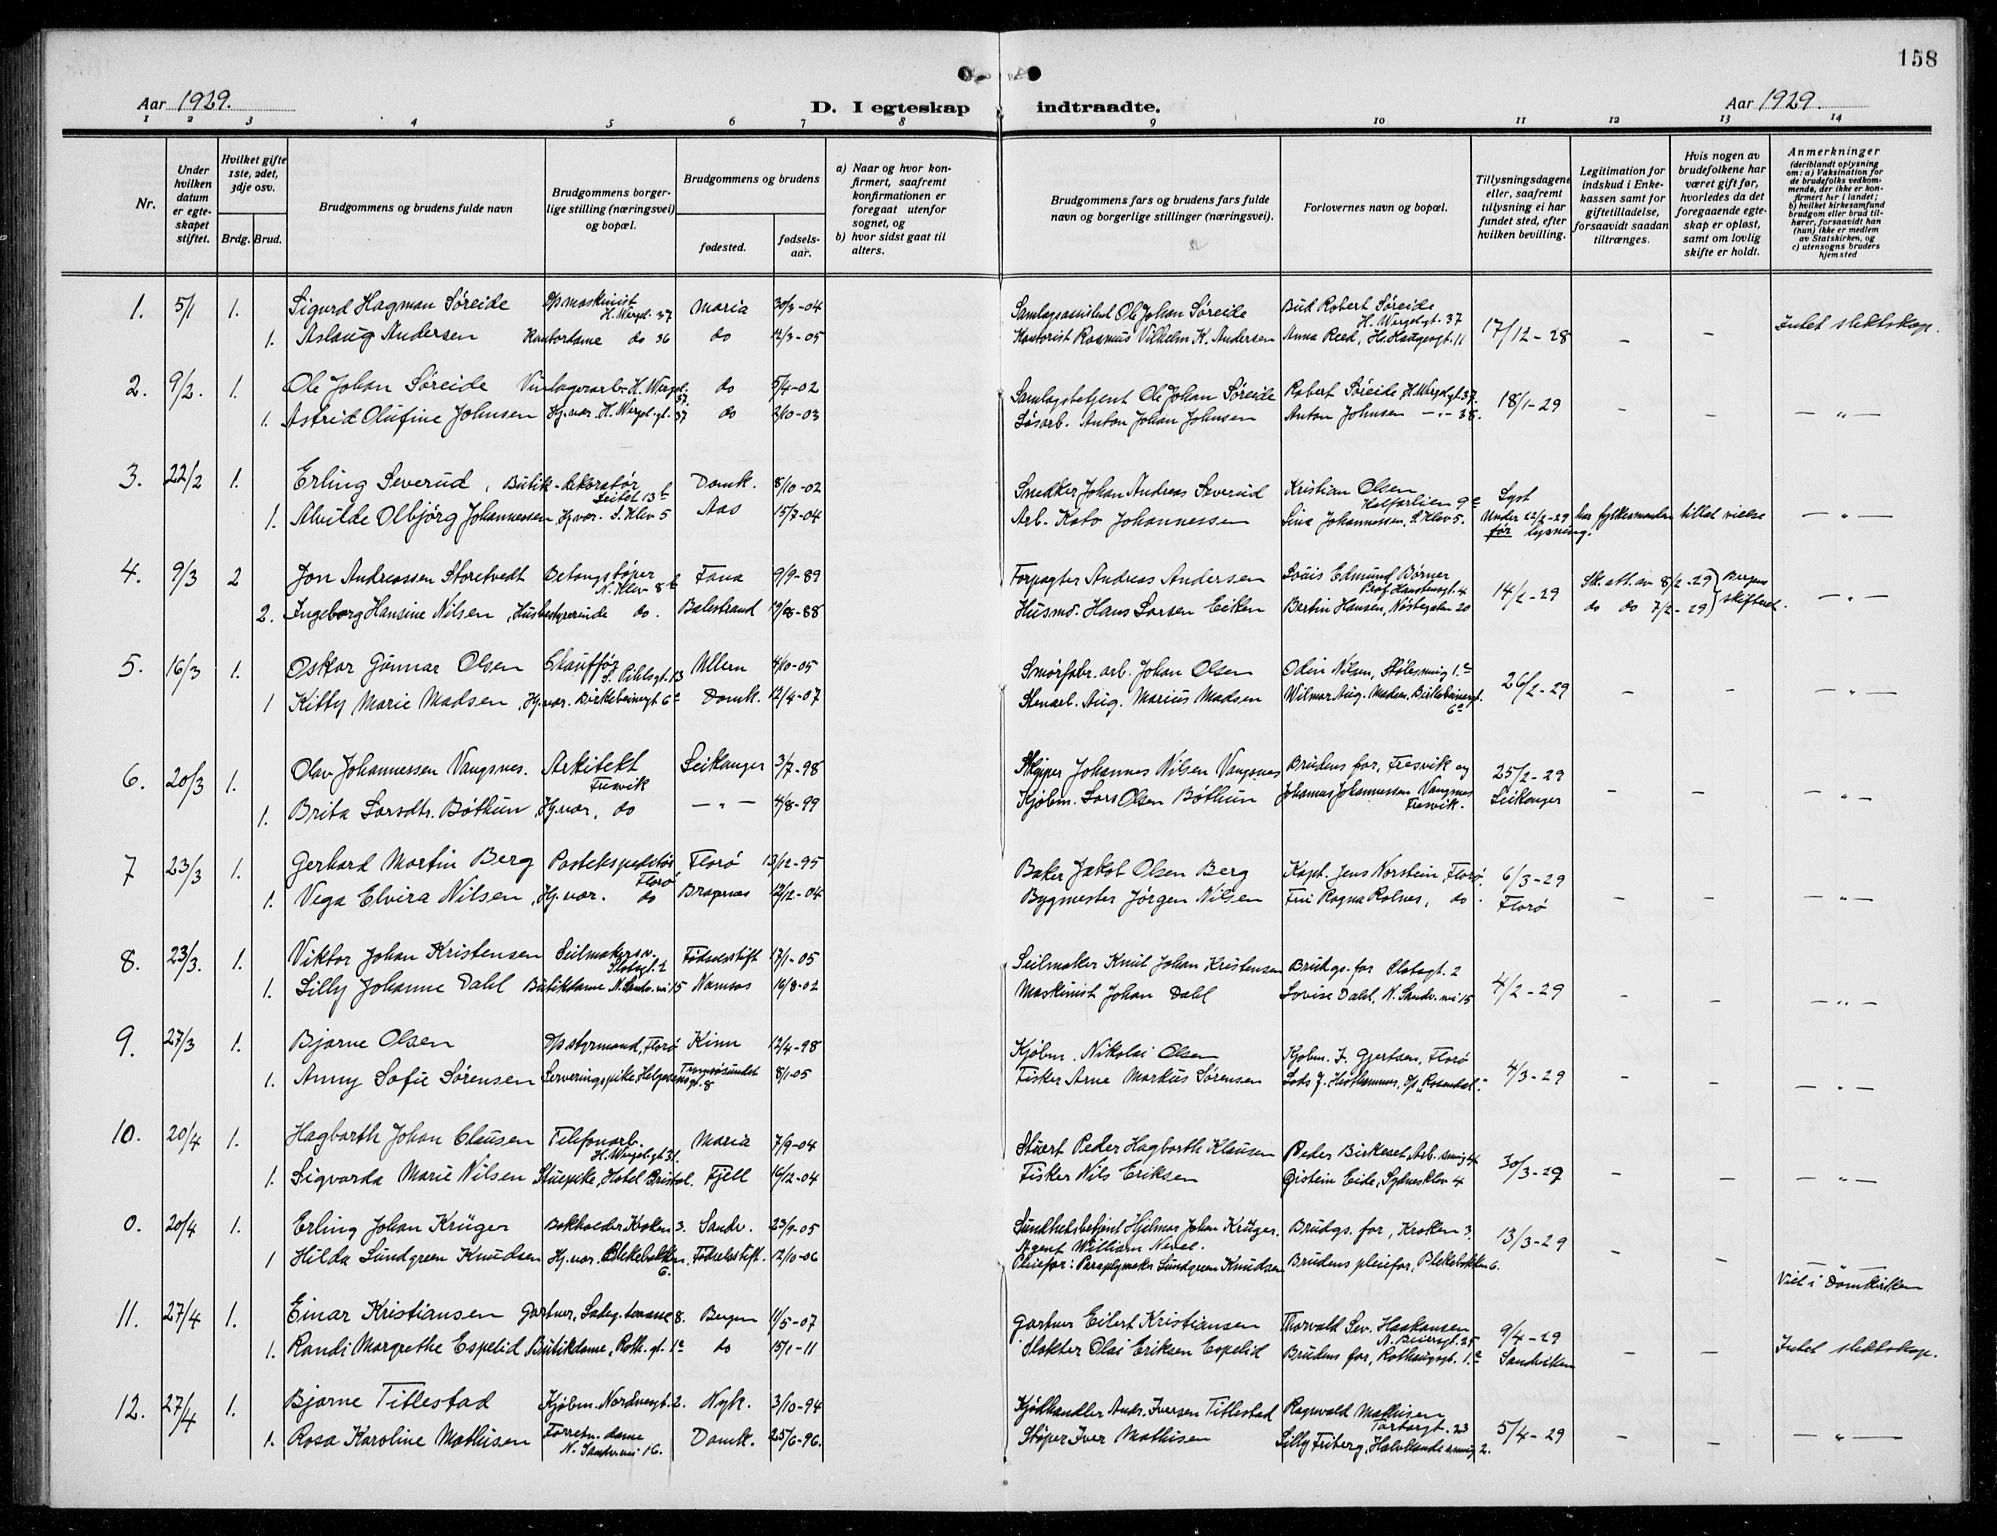 158
Aar 1929.
D. I egteskap indtraadte.
Aar 1929.
1 2 3 4 5 6 7 8 9 10 11 12 13 14
Nr.
Under hvilken datum er egteskapet stiftet.
Hvilket gifte 1ste, 2det, 3dje osv.
Brdg. Brud.
Brudgommens og brudens fulde navn
Brudgommens borgerlige stilling (næringsvei) og bopæl.
Brudgommens og brudens
fødested.
fødselsaar.
a) Naar og hvor konfirmert, saafremt konfirmationen er foregaat utenfor sognet, og
b) hvor sidst gaat til alters.
Brudgommens fars og brudens fars fulde navn og borgerlige stillinger (næringsvei).
Forlovernes navn og bopæl.
Tillysningsdagene eller, saafremt tillysning ei har fundet sted, efter hvilken bevilling.
Legitimation for indskud i Enkekassen samt for giftetilladelse, forsaavidt saadan tiltrænges.
Hvis nogen av brudefolkene har været gift før, hvorledes da det foregaaende egteskap er opløst, samt om lovlig skifte er holdt.
Anmerkninger
(deriblandt oplysning om: a) Vaksination for de brudefolks vedkommende, der ikke er konfirmert her i landet; b) hvilket kirkesamfund brudgom eller brud tilhører, forsaavidt han (hun) ikke er medlem av Statskirken, og c) utensogns bruders hjemsted
1. 5/1 1. Sigurd Hagman Søreide Dpmaskinist H. Wergl. 37 Maria 30/3-04 Samlagsassistent Ole Johan Søreide Bud Robert Søreide H. Wergelgt. 37 17/12-28 - - Intet slektskap.
1. Aslaug Andersen Kontordame do 36 do 12/3-05 Kontorist Rasmus Vilhelm K. Andersen Anna Reed, Hs. Haugesgt. 11
2. 9/2. 1. Ole Johan Søreide Vinlagerarb. H. Wergel. 37. do 5/4-02 Samlagsbetjent Ole Johan Søreide Robert Søreide H. Wergelgt 37. 18/1-29 - - - " -
1. Astrid Olufine Johnsen Hj.vær. H. Wergel.gt. 37 do 2/10-03 Løsarb. Anton Johan Johnsen Anton Johnsen - " - 38.
3. 22/2 1. Erling Severud, Butik-dekoratør Leitet 13 b Domk. 8/10-02 Snedker Johan Andreas Severud Kristian Olsen 9 c Lyst
1. Alvilde Olbjørg Johannessen, Hj.vær. S. Klev 5 Aas 15/7-04 Arb. Kato Johannessen Lina Johannessen, S. Klev 5. Under 12/2-29 har fylkesmanden tillat vielse før lysning. - " -
4. 9/3 2 Jon Andreassen Storetvedt Betongstøper N. Klev 8 b Fana 9/9-89 Forpagter Andreas Andersen Louis Edmund Børner Prof. Hanstensgt. 4 14/2-29 Sk. att. av 8/2-29 } Bergens skifteret. - " -
2. Ingeborg Hansine Nilsen, Husbestyrerinde do. Balestrand 19/8-88 Husmd. Hans Larsen Eiken Bertin Hansen, Nøstegaten 20 do do 7/2-29
5. 16/3 1. Oskar Gunnar Olsen Chauffør S. Pihlsgt. 13 Ullern 4/10-05 Smørfabr. arb. Johan Olsen Odin Nilsen, Støletsmug 1. c 26/2-29 - - - " -
1 Kitty Marie Madsen, Hj.vær. Birkebeinergt 6 c Domk. 12/4-07 Stenarb. Aug. Marius Madsen Wilmar Aug. Madsen, Birkebeinergt. 6 c
6. 20/3 1. Olav Johannessen Vangsnes. Arkitekt Fresvik Leikanger 3/7-98 Skipper Johannes Nilsen Vangsnes Brudens far, Fresvik og 25/2-29 Leikanger - - - " -
1. Brita Larsdtr. Bøthun, Hj.vær, do - " - 4/8-99 Kjøbm. Lars Olsen Bøthun Johannes Johannessen Vangsnes Fresvik.
7 23/3 1. Gerhard Martin Berg Postekspeditør Florø Florø 13/12-95 Baker Jakob Olsen Berg Kapt. Jens Norstein, Florø. 6/3-29 Florø - - - " -
1. Vega Elvira Nilsen, Hj.vær. do Bragernes 12/12-04 Bygmester Jørgen Nilsen Fru Ragna Rolnes, do.
8. 23/3. 1. Viktor Johan Kristensen Seilmakersv. Slotsgt. 2 Fødselsstift 17/1-05 Seilmaker Knut Johan Kristensen Brudgs. far Slotsgt. 2 4/2-29 - - - " -
1. Lilly Johanne Dahl Butikdame N. Sandv. vei 15 Namsos 16/8-02 Maskinist Johan Dahl Lovise Dahl, N. Sandv. vei 15
9. 27/3 1. Bjarne Olsen Dpstyrmand, Florø Kinn 12/4-98 Kjøbm. Nikolai Olsen Kjøbm. J. Gjertsen, Florø 4/3-29 - - - " -
1. Anny Sofie Sørensen Serveringspike, Helgesensgt. 8 Tromsøsundet 8/1-05 Fisker Arne Markus Sørensen Dp. "Rosendal".
10. 20/4 1. Hagbarth Johan Clausen Telefonarb. H. Wergel.gt 31. Maria 7/9-04 Stuert Peder Hagbarth Klausen Peder Birkeset, Arb. smug 4 30/3-29 - - - " -
1. Sigvarda Marie Nilsen Stuepike, Hotel Bristol. Fjell 14/12-04 Fisker Nils Eriksen Øistein Eide, Sydnesklev 4
0. 20/4 1. Erling Johan Krüger Bokholder Kroken 3. Sandv. 23/9-05 Sundhetsbetjent Hjelmar Johan Krüger. Brudgs. far, Kroken 3. 13/3-29 - - Viet i Domkirken
1 Hilda Lundgreen Knudsen Hj.vær. Blekebakken 6. Fødselsstift. 12/10-06 Agent William Nevel. Pleiefar: Paraplymaker Lundgreen Knudsen Brudens pleiefar, Blekebakken 6.
11. 27/4 1. Einar Kristiansen Gartner, Ladeg. terrasse 8. Bergen 11/5-07 Gartner Eilert Kristiansen Thorvald Sev. Haakonsen N. Beiersgt. 25 9/4-29 Sandviken - - Intet slektskap.
1. Randi Margrethe Espelid Butikdame, Roth. gt. 1 a do 15/1-11 Slakter Olai Eriksen Espelid Brudens far, Rothaugsgt. 1. a
12. 27/4 1. Bjarne Titlestad Kjøbm. Nordnesgt. 2. Nyk. 3/10-94 Kjødhandler Andr. Iversen Titlestad Ragnvald Mathisen Tartargt. 23 5/4-29 - - - " -
1. Rosa Karoline Mathisen Forretn. dame N. Sandv. vei 16. Domk. 25/6-96. Støper Iver Mathisen Lilly Friberg, Halvkandesmug 2.